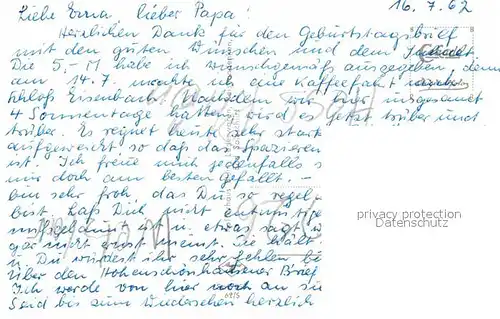 16.7.62
Liebe Erna lieber Papa!
Herzlichen Dank für den Geburtstagsbrief
mit den guten Wünschen und dem
Die 5,- M habe ich wunschgemäß ausgegeben, denn
am 14.7. machte ich eine Kaffeefahrt nach
Schloß Eisenbach. Nachdem wir hier insgesamt
4 Sonnentage hatten wird es jetzt trüber und
trüber. Es regnet heute sehr stark
aufgeweicht so daß das Spazieren
ist. Ich freue mich jedenfalls
mir doch am besten gefällt. -
bin sehr froh, das Du so regel
bist. Laß Dich nicht
u. etwas sagt
gar nicht meint. Sie hält
u. Du würdest ihr sehr fehlen
über den Hohenschönhausener Brief
Ich werde von hier noch an
Seid bis zum Wiedersehen herzlich
privacy protection
Datenschutz